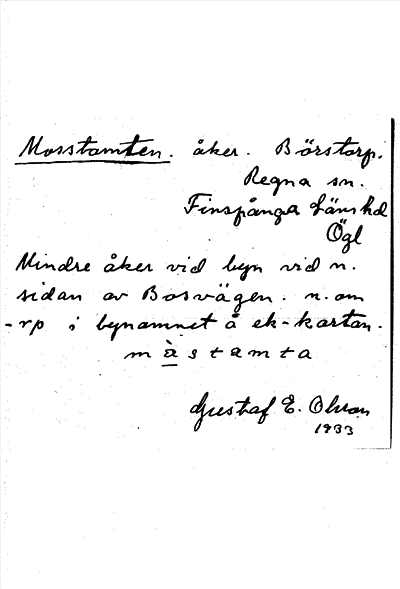 Mosstamten. åker. Börstorp.
Regna sn.
Finspånga läns hd
Ögl
Mindre åker vid byn vid n.
sidan av Bosvägen. n. om
-rp i bynamnet å ek-kartan.
m à s t a m t a
Gustaf E. Olsson
1933